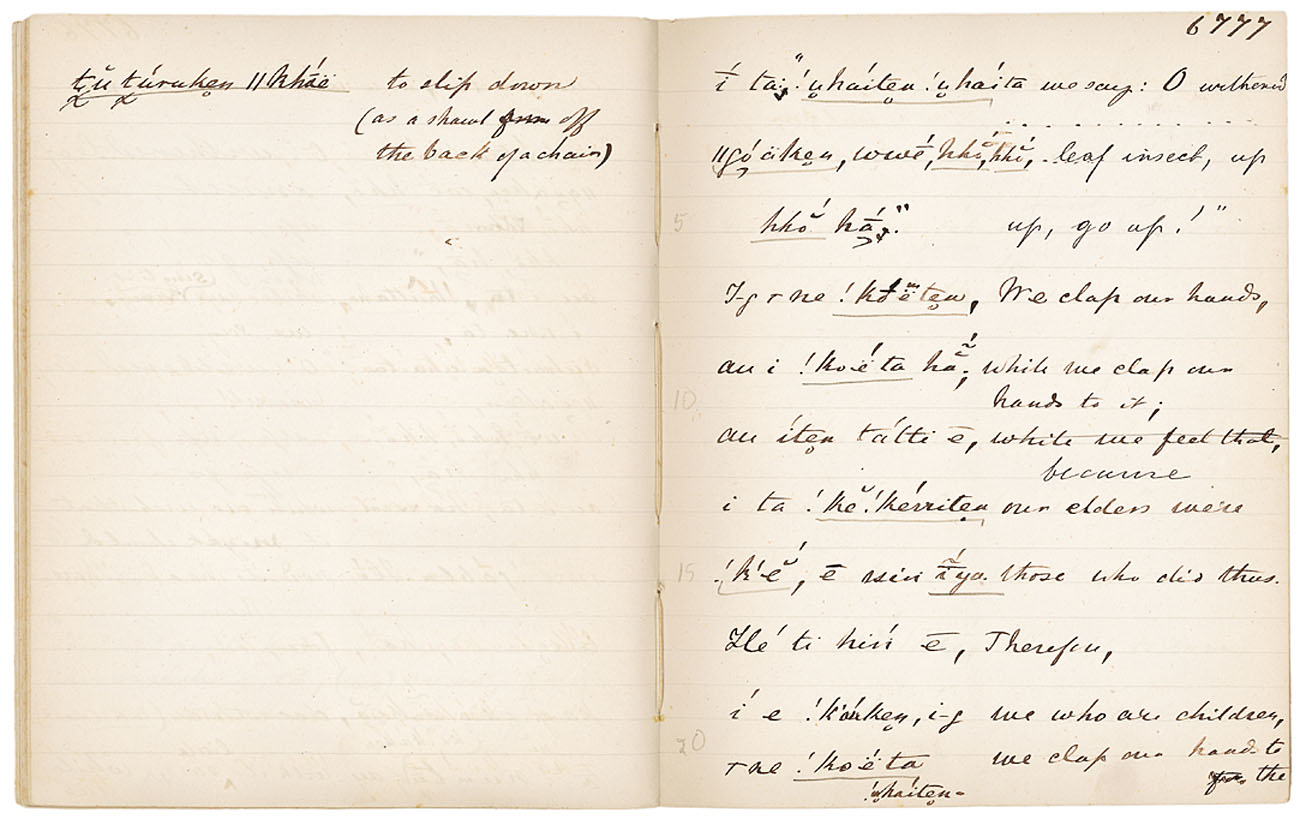 tŭ túruken ǁkháë to slip down
(as a shawl off
the back of a chair)
6777
í ta; "!uháiten !uháita we say: O withered
ǁgóäken, wwé, hhŏ́, hhŏ́, leaf insect, up
5 hhŏ́ há;" up, go up!"
I-g ne !koëten, We clap our hands,
au i !koëta hã; while we clap our
10 hands to it;
au íten tátti ē, while we feel that,
because
i ta !kĕ!kérriten our elders were
15 ē those who did thus.
Hé ti hiń ē, Therefore,
í e !kaúken, i-g we who are children,
20 ne !koëta we clap our hands to
!uháiten- the